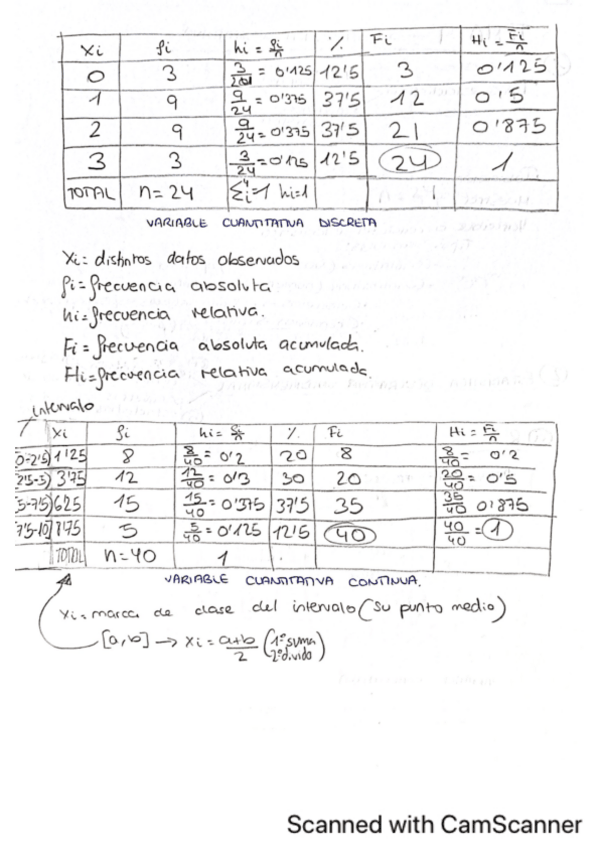 Xi fi hi = fi/n % Fi Hi = Fi/n
0 3 3/24 = 0'125 12'5 3 0'125
1 9 9/24 = 0'375 37'5 12 0'5
2 9 9/24 = 0'375 37'5 21 0'875
3 3 3/24 = 0'125 12'5 24 1
TOTAL n = 24 hi=1
VARIABLE CUANTITATIVA DISCRETA
Xi = distintos datos observados
fi = frecuencia absoluta
hi = frecuencia relativa.
Fi = frecuencia absoluta acumulada.
Hi = frecuencia relativa acumulada.
intervalo
Xi fi hi = fi/n % Fi Hi = Fi/n
[0-2'5) 1'25 8 8/40 = 0'2 20 8 8/40 = 0'2
2'5-5) 3'75 12 12/40 = 0'3 30 20 20/40 = 0'5
5-7'5) 6'25 15 15/40 = 0'375 37'5 35 35/40 0'875
7'5-10] 8'75 5 5/40 = 0'125 12'5 40 40/40 = 1
TOTAL n = 40 1
VARIABLE CUANTITATIVA CONTINUA.
Xi = marca de clase del intervalo (su punto medio)
[a, b] → Xi = a+b/2 (1º suma 2º divido)
Scanned with CamScanner